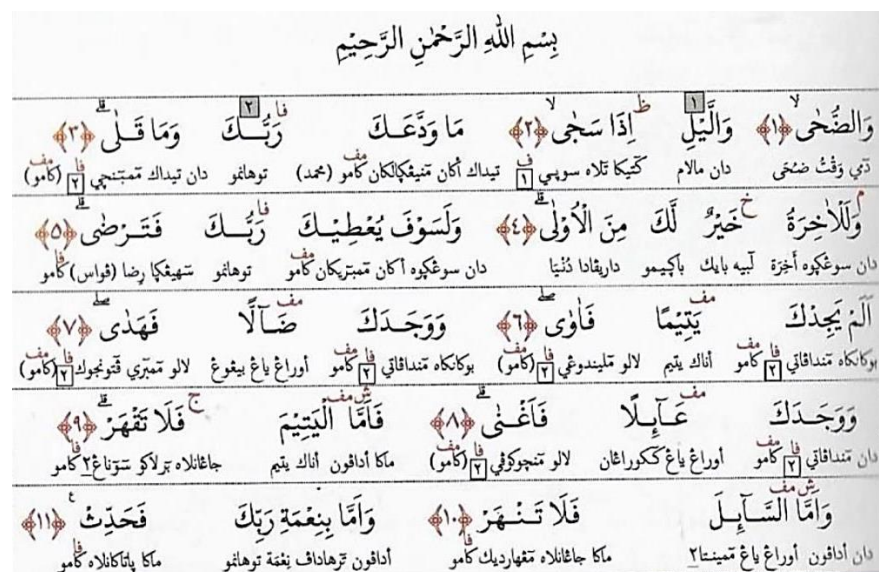 بِسْمِ اللهِ الرَّحْمٰنِ الرَّحِيْمِ
وَالضُّحٰى ﴿١﴾ وَالَّيْلِ اِذَا سَجٰى ﴿٢﴾ مَا وَدَّعَـكَ رَبُّـكَ وَمَا قَـلٰى ﴿٣﴾
دَمي وَقْتُ ضُحَى دان مالام كَتيكا تَلاه سوڽي ١ تيداك أكان مَنيڠݢالكان كامو (محمد) توهانمو دان تيداك مَمبَنچي ٢ (كامو)
وَلَلْاٰخِرَةُ خَيْرٌ لَّكَ مِنَ الْاُوْلٰى ﴿٤﴾ وَلَسَوْفَ يُعْطِيْـكَ رَبُّـكَ فَتَـرْضٰى ﴿٥﴾
دان سوڠݢوه أخِرَة لَبيه بايك باݢيمو داريڤادا دُنْيَا دان سوڠݢوه أكان مَمبَريكان كامو توهانمو سَهيڠݢا رِضا (ڤواس) كامو
اَلَمْ يَجِدْكَ يَتِيْمًا فَاٰوٰى ﴿٦﴾ وَوَجَـدَكَ ضَـآلًّا فَهَدٰى ﴿٧﴾
بوكانكاه مَنداڤاتي ٢ كامو أناك يتيم لالو مَليندوڠي ٢ (كامو) بوكانكاه مَنداڤاتي ٢ كامو أوراڠ ياڠ بيڠوڠ لالو مَمبَري ڤَتونجوك ٢ (كامو)
وَوَجَدَكَ عَـآىِٕـلًا فَاَغْـنٰى ﴿٨﴾ فَاَمَّا الْيَتِيْمَ فَلَا تَقْهَرْ ﴿٩﴾
دان مَنداڤاتي ٢ كامو أوراڠ ياڠ كَكوراڠان لالو مَنچوكوڤي ٢ (كامو) ماكا أداڤون أناك يتيم جاڠانلاه بَرلاكو سَوَناڠ٢ كامو
وَاَمَّا السَّآىِٕـلَ فَلَا تَـنْـهَرْ ﴿١٠﴾ وَاَمَّا بِنِعْمَةِ رَبِّكَ فَحَدِّثْ ﴿١١﴾
دان أداڤون أوراڠ ياڠ مَمينتا٢ ماكا جاڠانلاه مَڠهارديك كامو أداڤون تَرهاداڤ نِعْمَة توهانمو ماكا ڽاتاكانلاه كامو